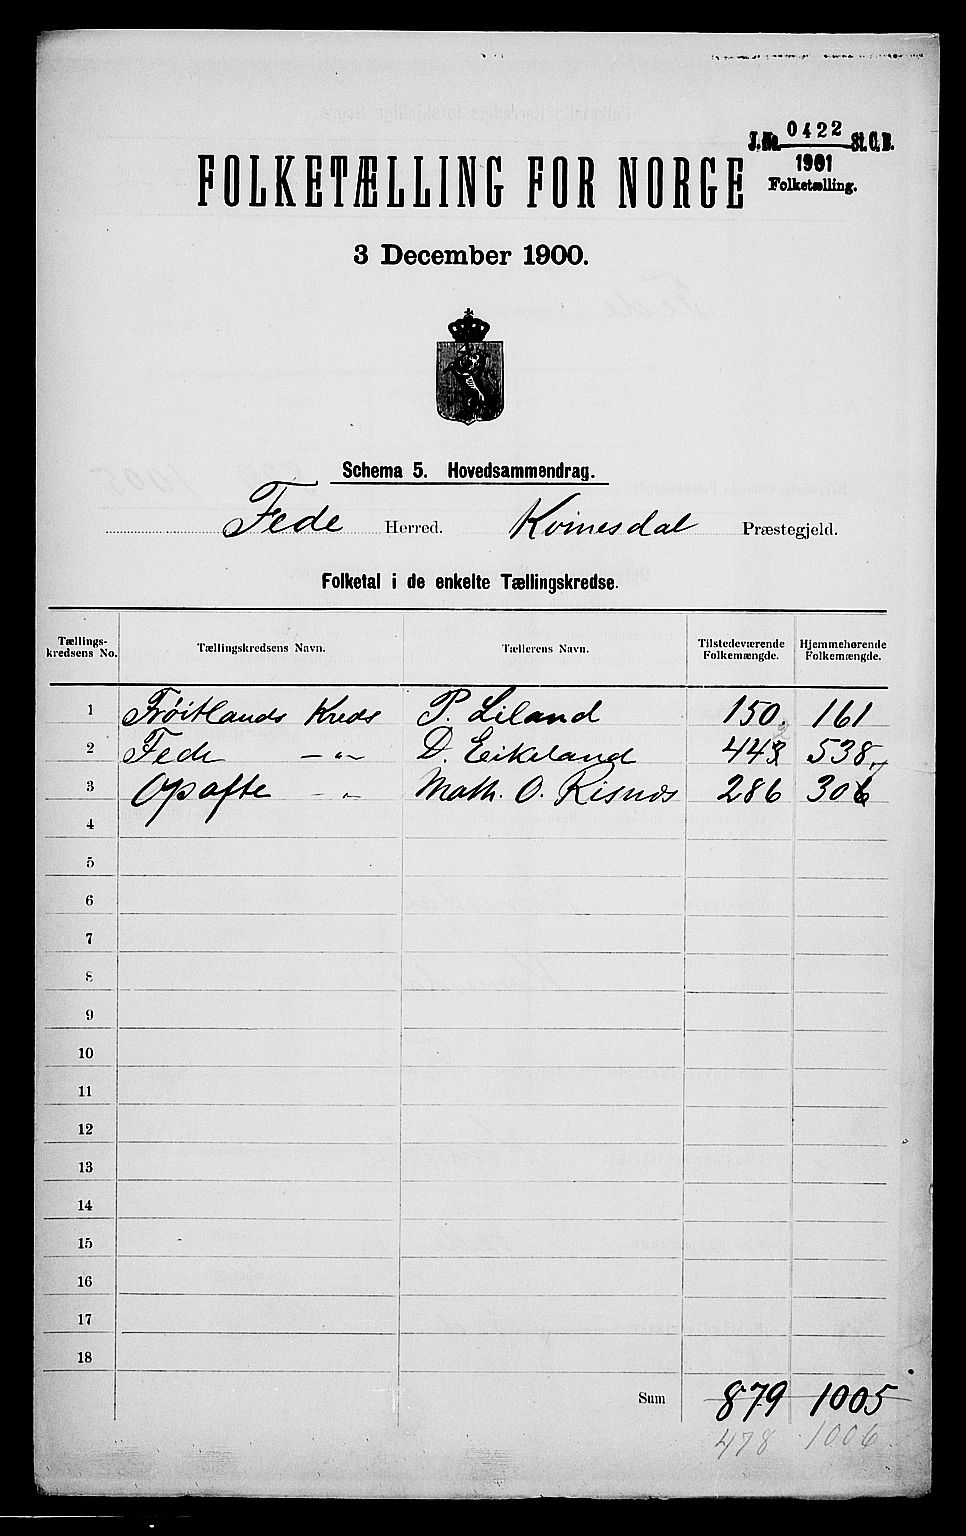 J.No. 0422 St.C.B.
1901
Folketælling.
FOLKETÆLLING FOR NORGE
3 December 1900.
Schema 5. Hovedsammendrag.
Fede Herred. Kvinesdal Præstegjeld.
Folketal i de enkelte Tællingskredse.
Tællings-kredsens No. Tællingskredsens Navn. Tællerens Navn. Tilstedeværende Folkemængde. Hjemmehørende Folkemængde.
1 Frøitlands Kreds P. Liland 150. 161
2 Fede —〃— D. Eikeland 443 2 538
3 Opofte —〃— Math. O. Risnes 286 306
4
5
6
7
8
9
10
11
12
13
14
15
16
17
18
Sum 879 1005
478 1006